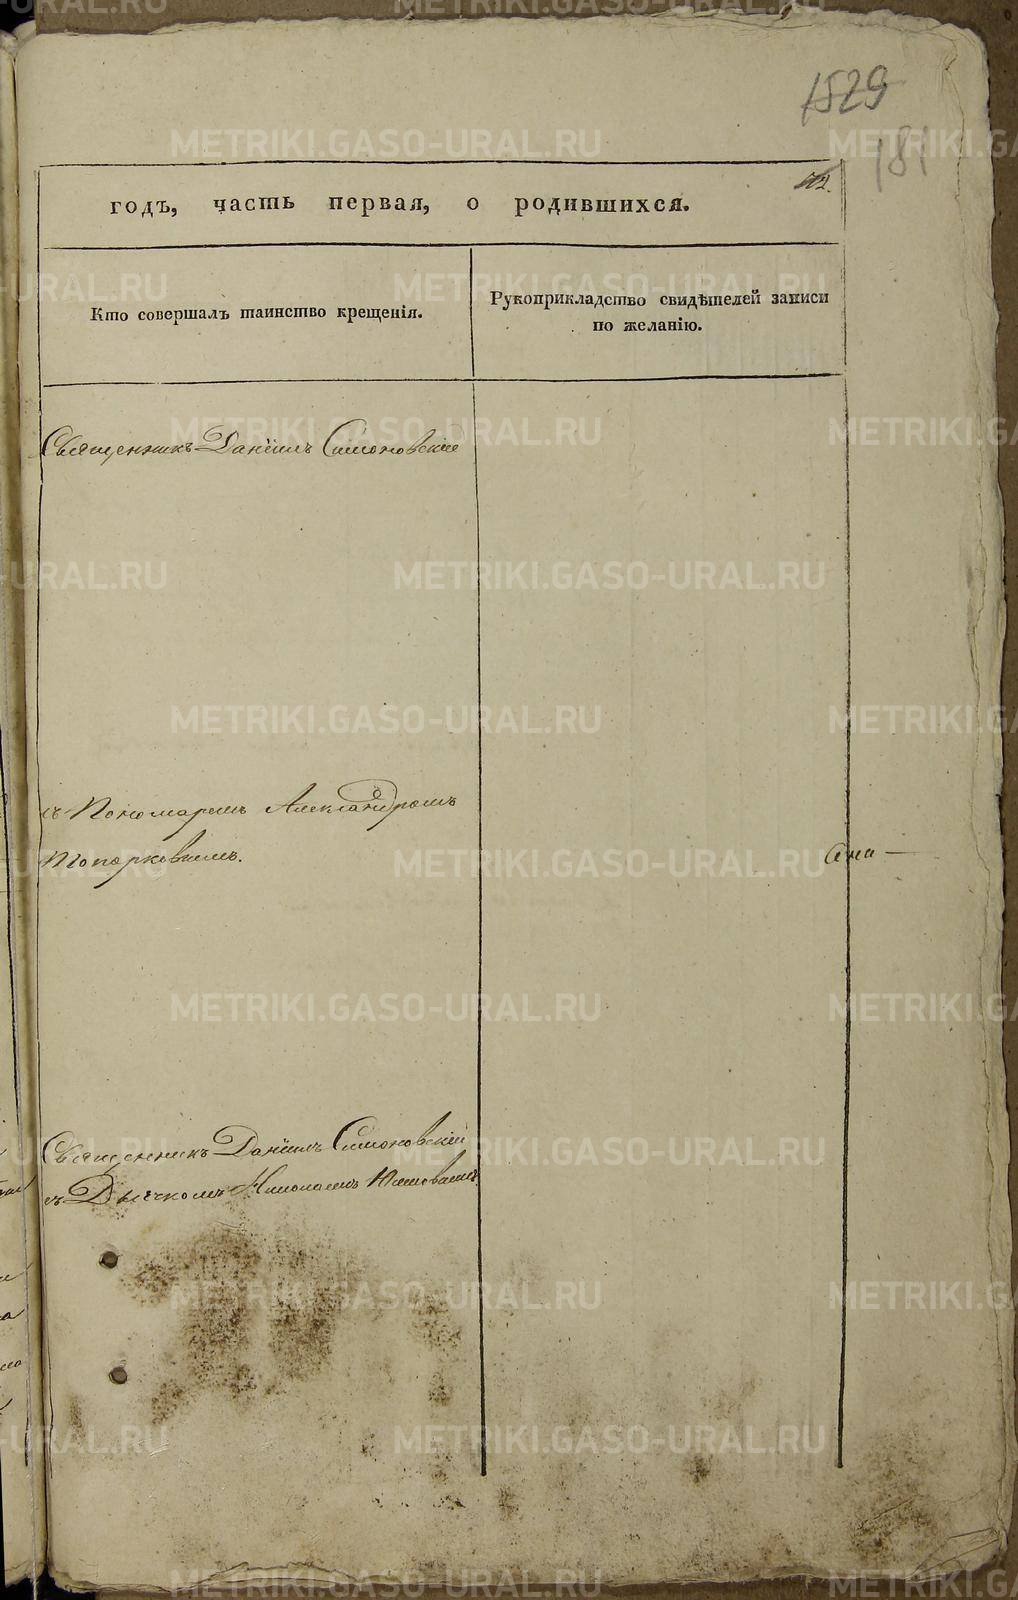 1529
181
годъ, часть первая, о родившихся.
Кто совершалъ таинство крещенія.
Рукоприкладство свидѣтелей записи
по желанію.
Священникъ Даніилъ Симоновскій
съ Пономаремъ Александромъ
Топорковымъ.
Священникъ Даніилъ Симоновскій
съ Дьячкомъ Николаемъ
METRIKI.GASO-URAL.RU